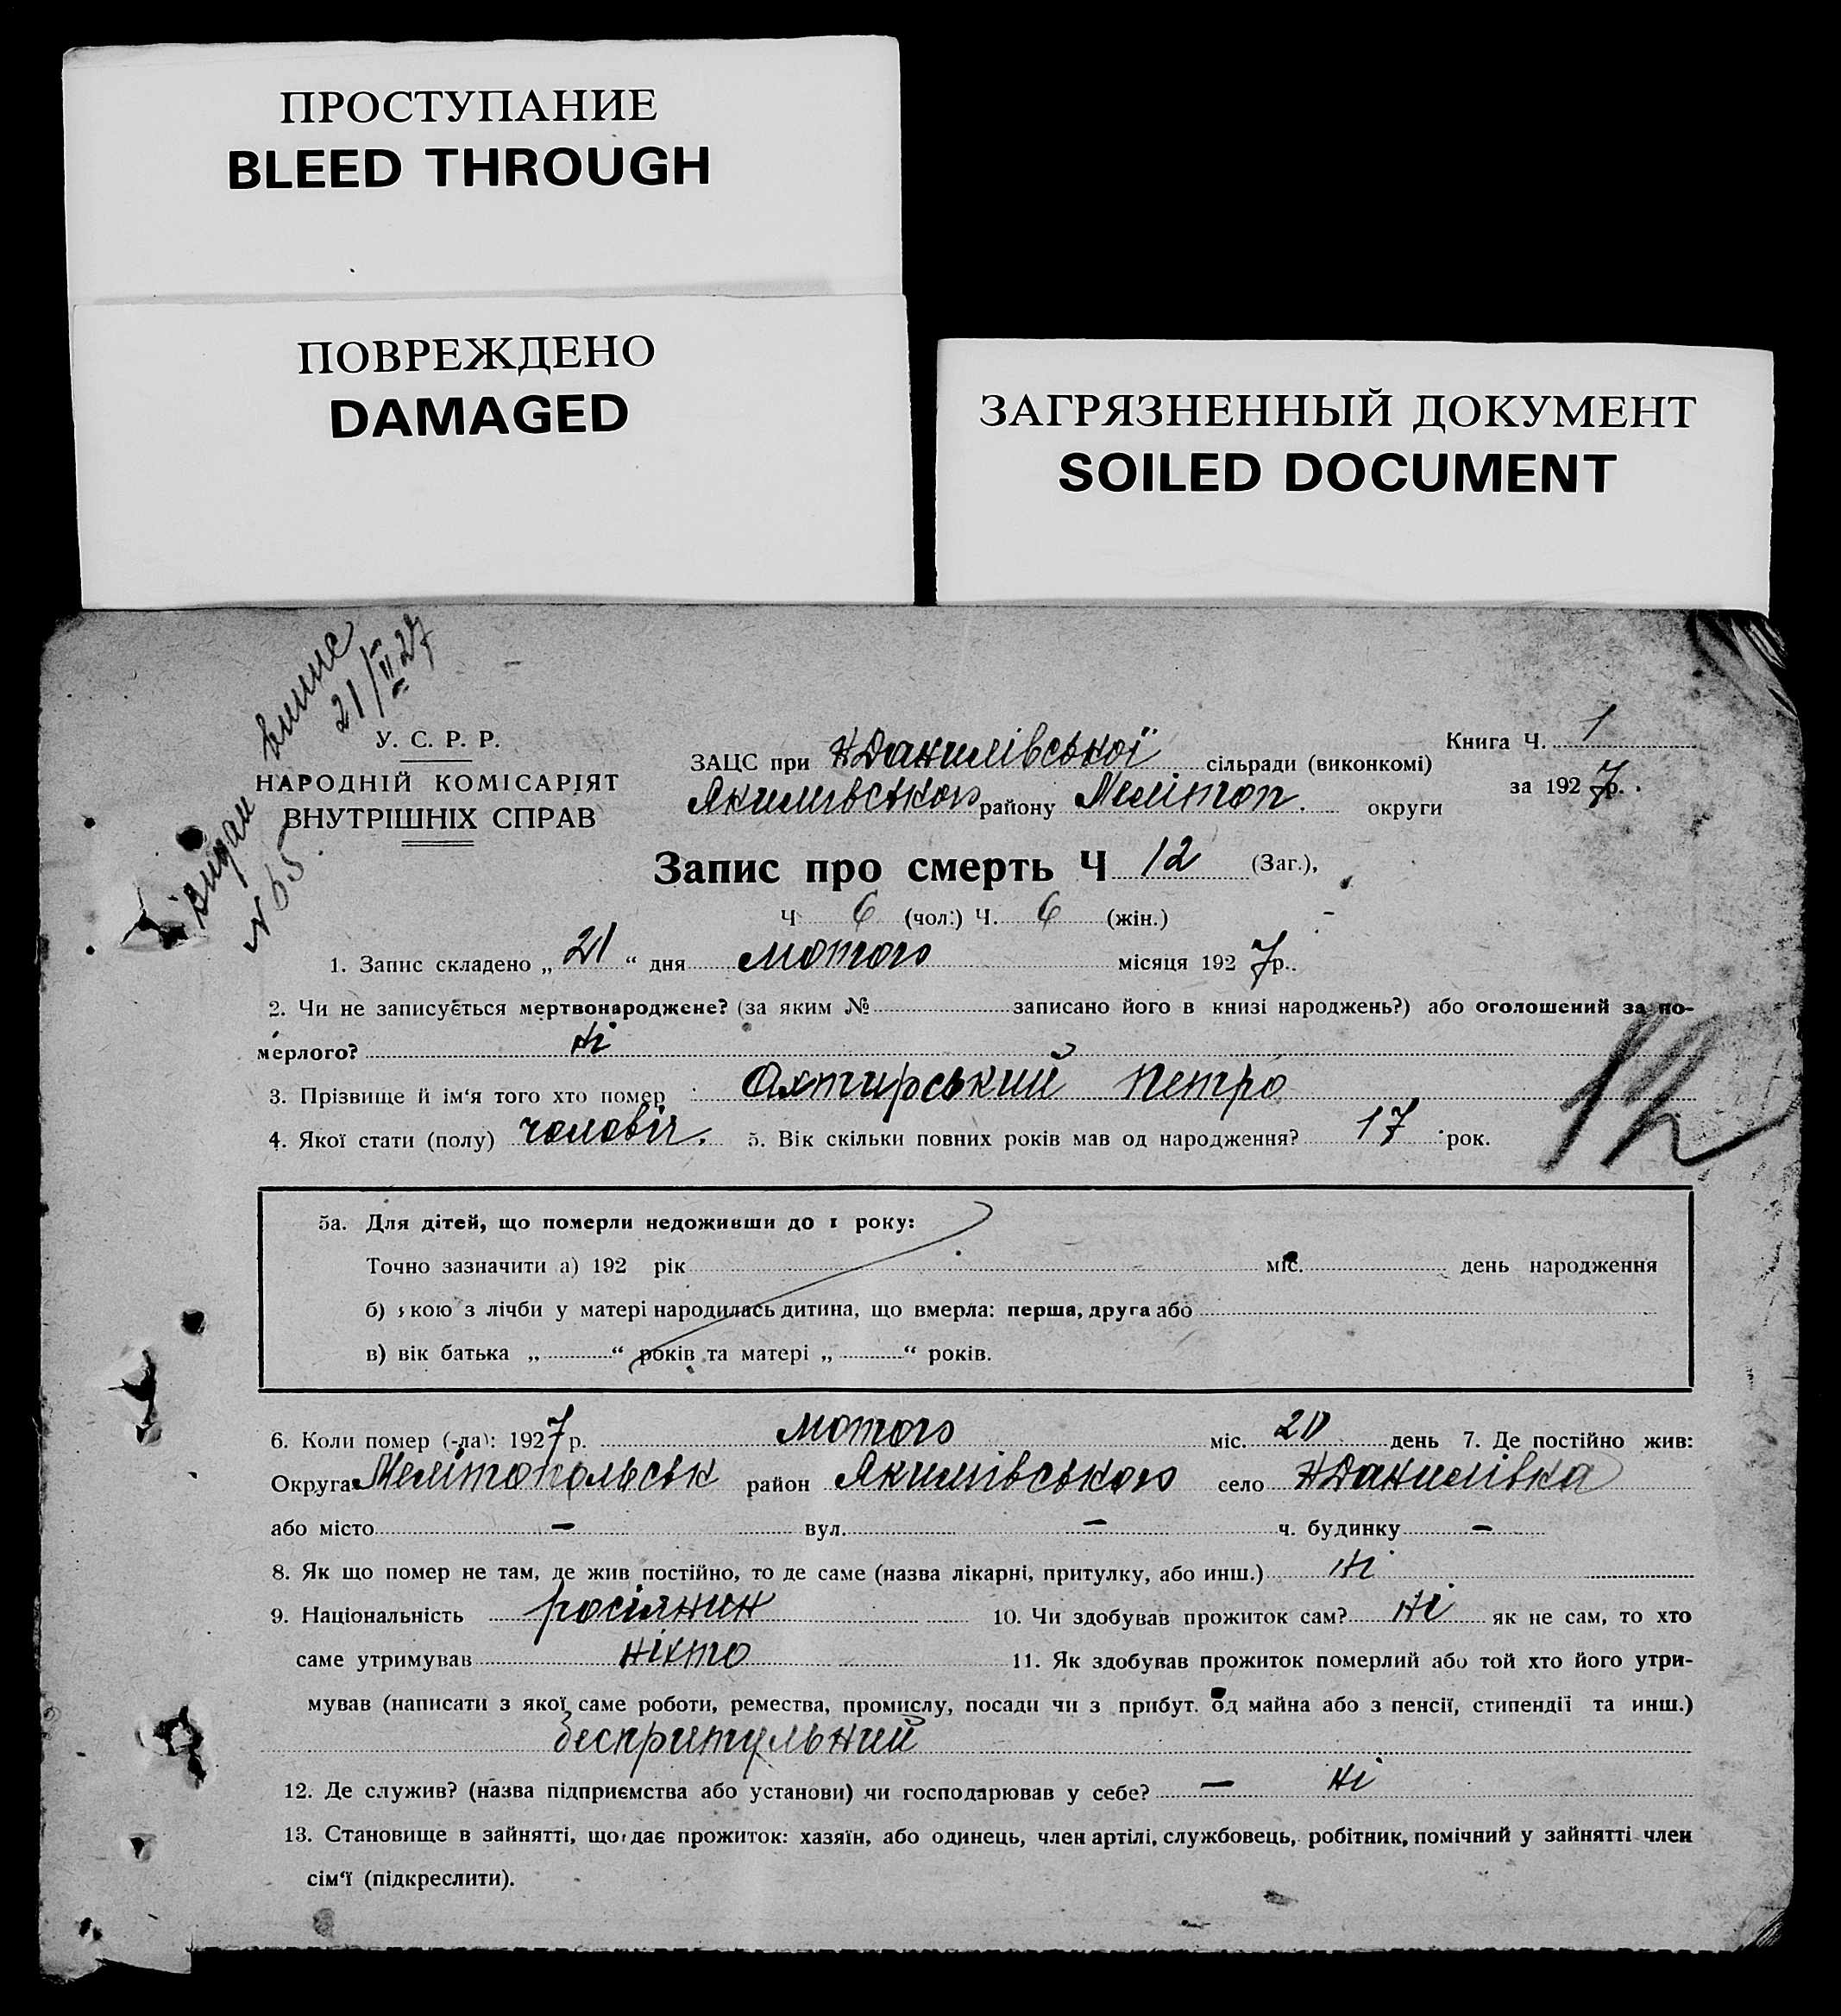 ПРОСТУПАНИЕ
BLEED THROUGH
ПОВРЕЖДЕНО
DAMAGED
ЗАГРЯЗНЕННЫЙ ДОКУМЕНТ
SOILED DOCUMENT
Видан випис
№ 65 21/II 27
У. С. Р. Р.
НАРОДНІЙ КОМІСАРІЯТ
ВНУТРІШНІХ СПРАВ
ЗАЦС при НДанилівської сільради (виконкомі)
Якимівського району Мелітоп. округи
Книга Ч. 1
за 1927р.
Запис про смерть Ч 12 (Заг.),
Ч 6 (чол.) Ч. 6 (жін.)
1. Запис складено „ 21 “ дня лютого місяця 1927р.
2. Чи не записується мертвонароджене? (за яким № записано його в книзі народжень?) або оголошений за по-
мерлого? Ні
3. Прізвище й ім‘я того хто помер Охтирський Петро
12
4. Якої стати (полу) чоловіч. 5. Вік скільки повних років мав од народження? 17 рок.
5а. Для дітей, що померли недоживши до 1 року:
Точно зазначити а) 192 рік міс. день народження
б) якою з лічби у матері народилась дитина, що вмерла: перша, друга або
в) вік батька „ “ років та матері „ “ років.
6. Коли помер (-ла): 1927р. лютого міс. 20 день 7. Де постійно жив:
Округа Мелітопольськ район Якимівського село НДанилівка
або місто – вул. – ч. будинку –
8. Як що помер не там, де жив постійно, то де саме (назва лікарні, притулку, або инш.) Ні
9. Національність росіянин 10. Чи здобував прожиток сам? Ні як не сам, то хто
саме утримував ніхто 11. Як здобував прожиток померлий або той хто його утри-
мував (написати з якої саме роботи, ремества, промислу, посади чи з прибут. од майна або з пенсії, стипендії та инш.)
беспритульний
12. Де служив? (назва підприємства або установи) чи господарював у себе? – Ні
13. Становище в зайнятті, що дає прожиток: хазяїн, або одинець, член артілі, службовець, робітник, помічний у зайнятті член
сім‘ї (підкреслити).